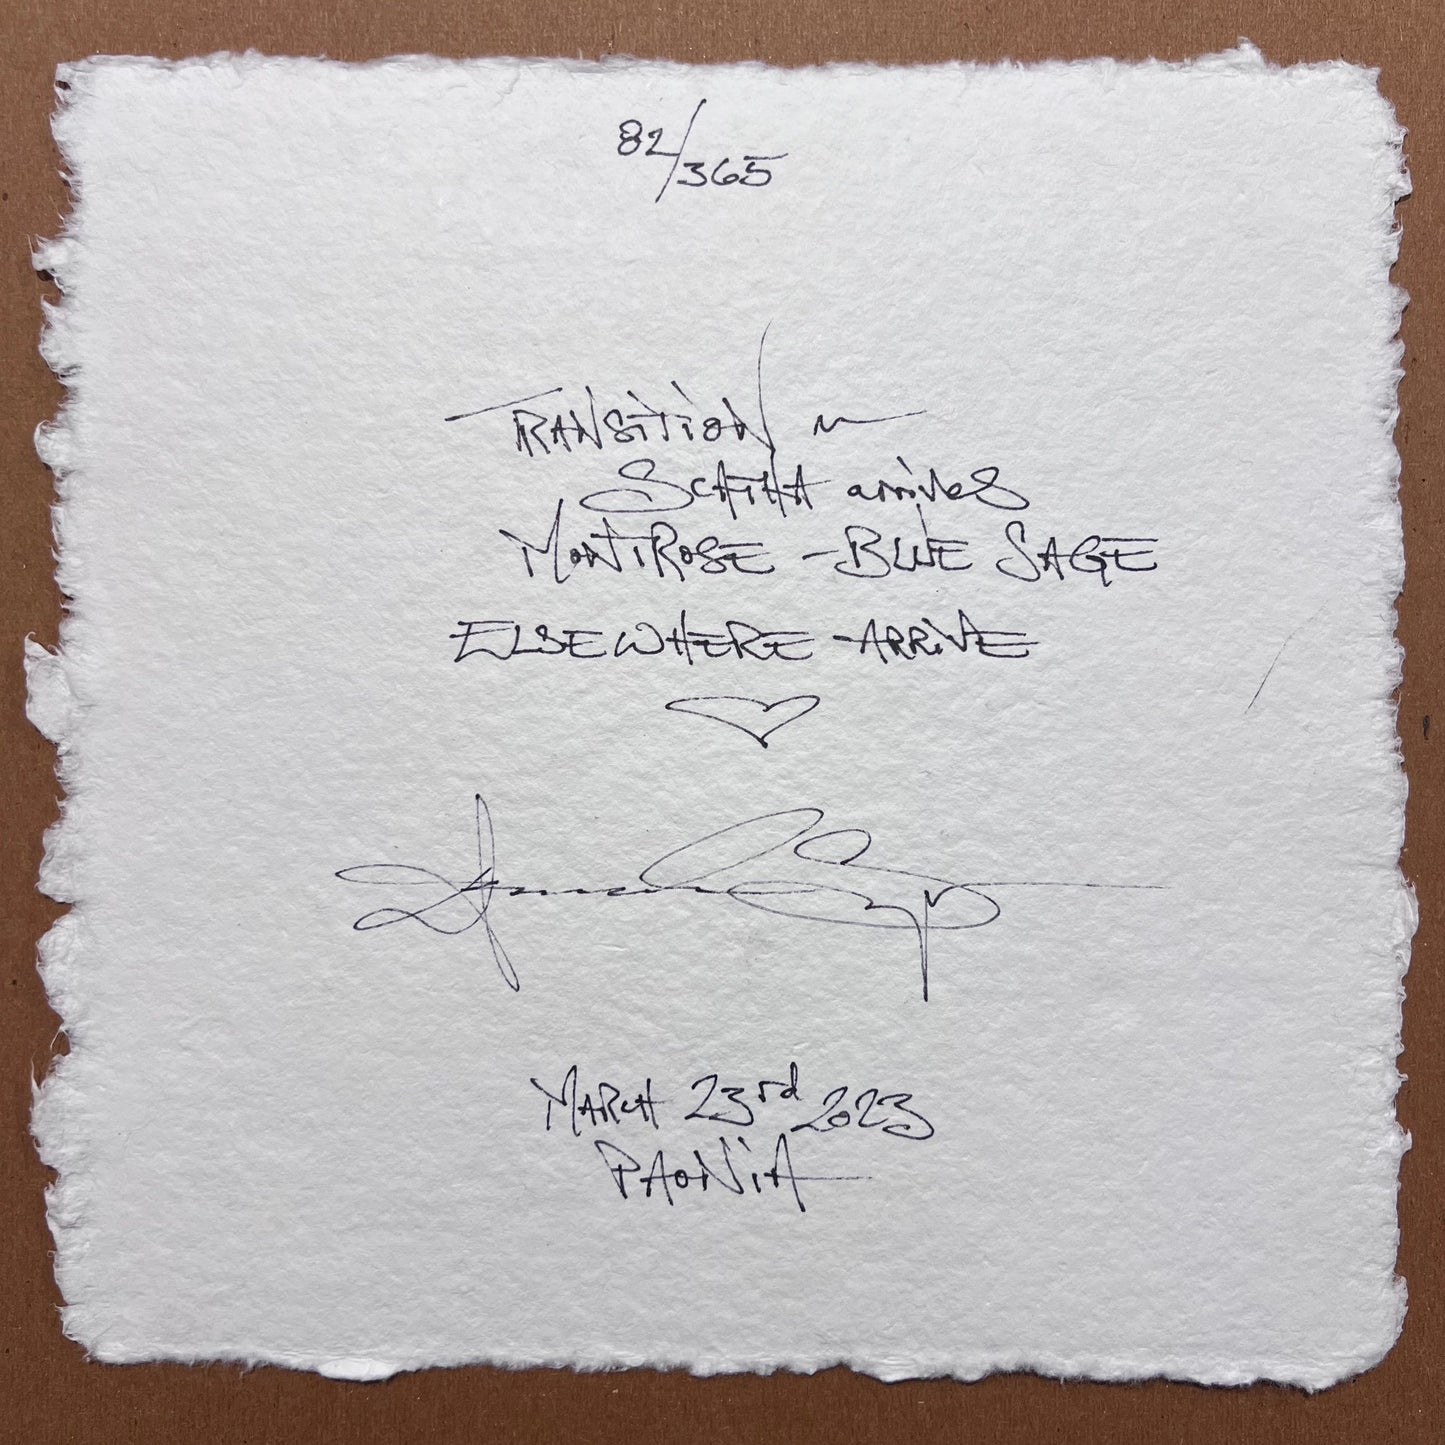 82/365
TRANSITION ~
SCATHA arrives
MONTROSE - BLUE SAGE
ELSEWHERE - ARRIVE
MARCH 23rd 2023
PAONIA